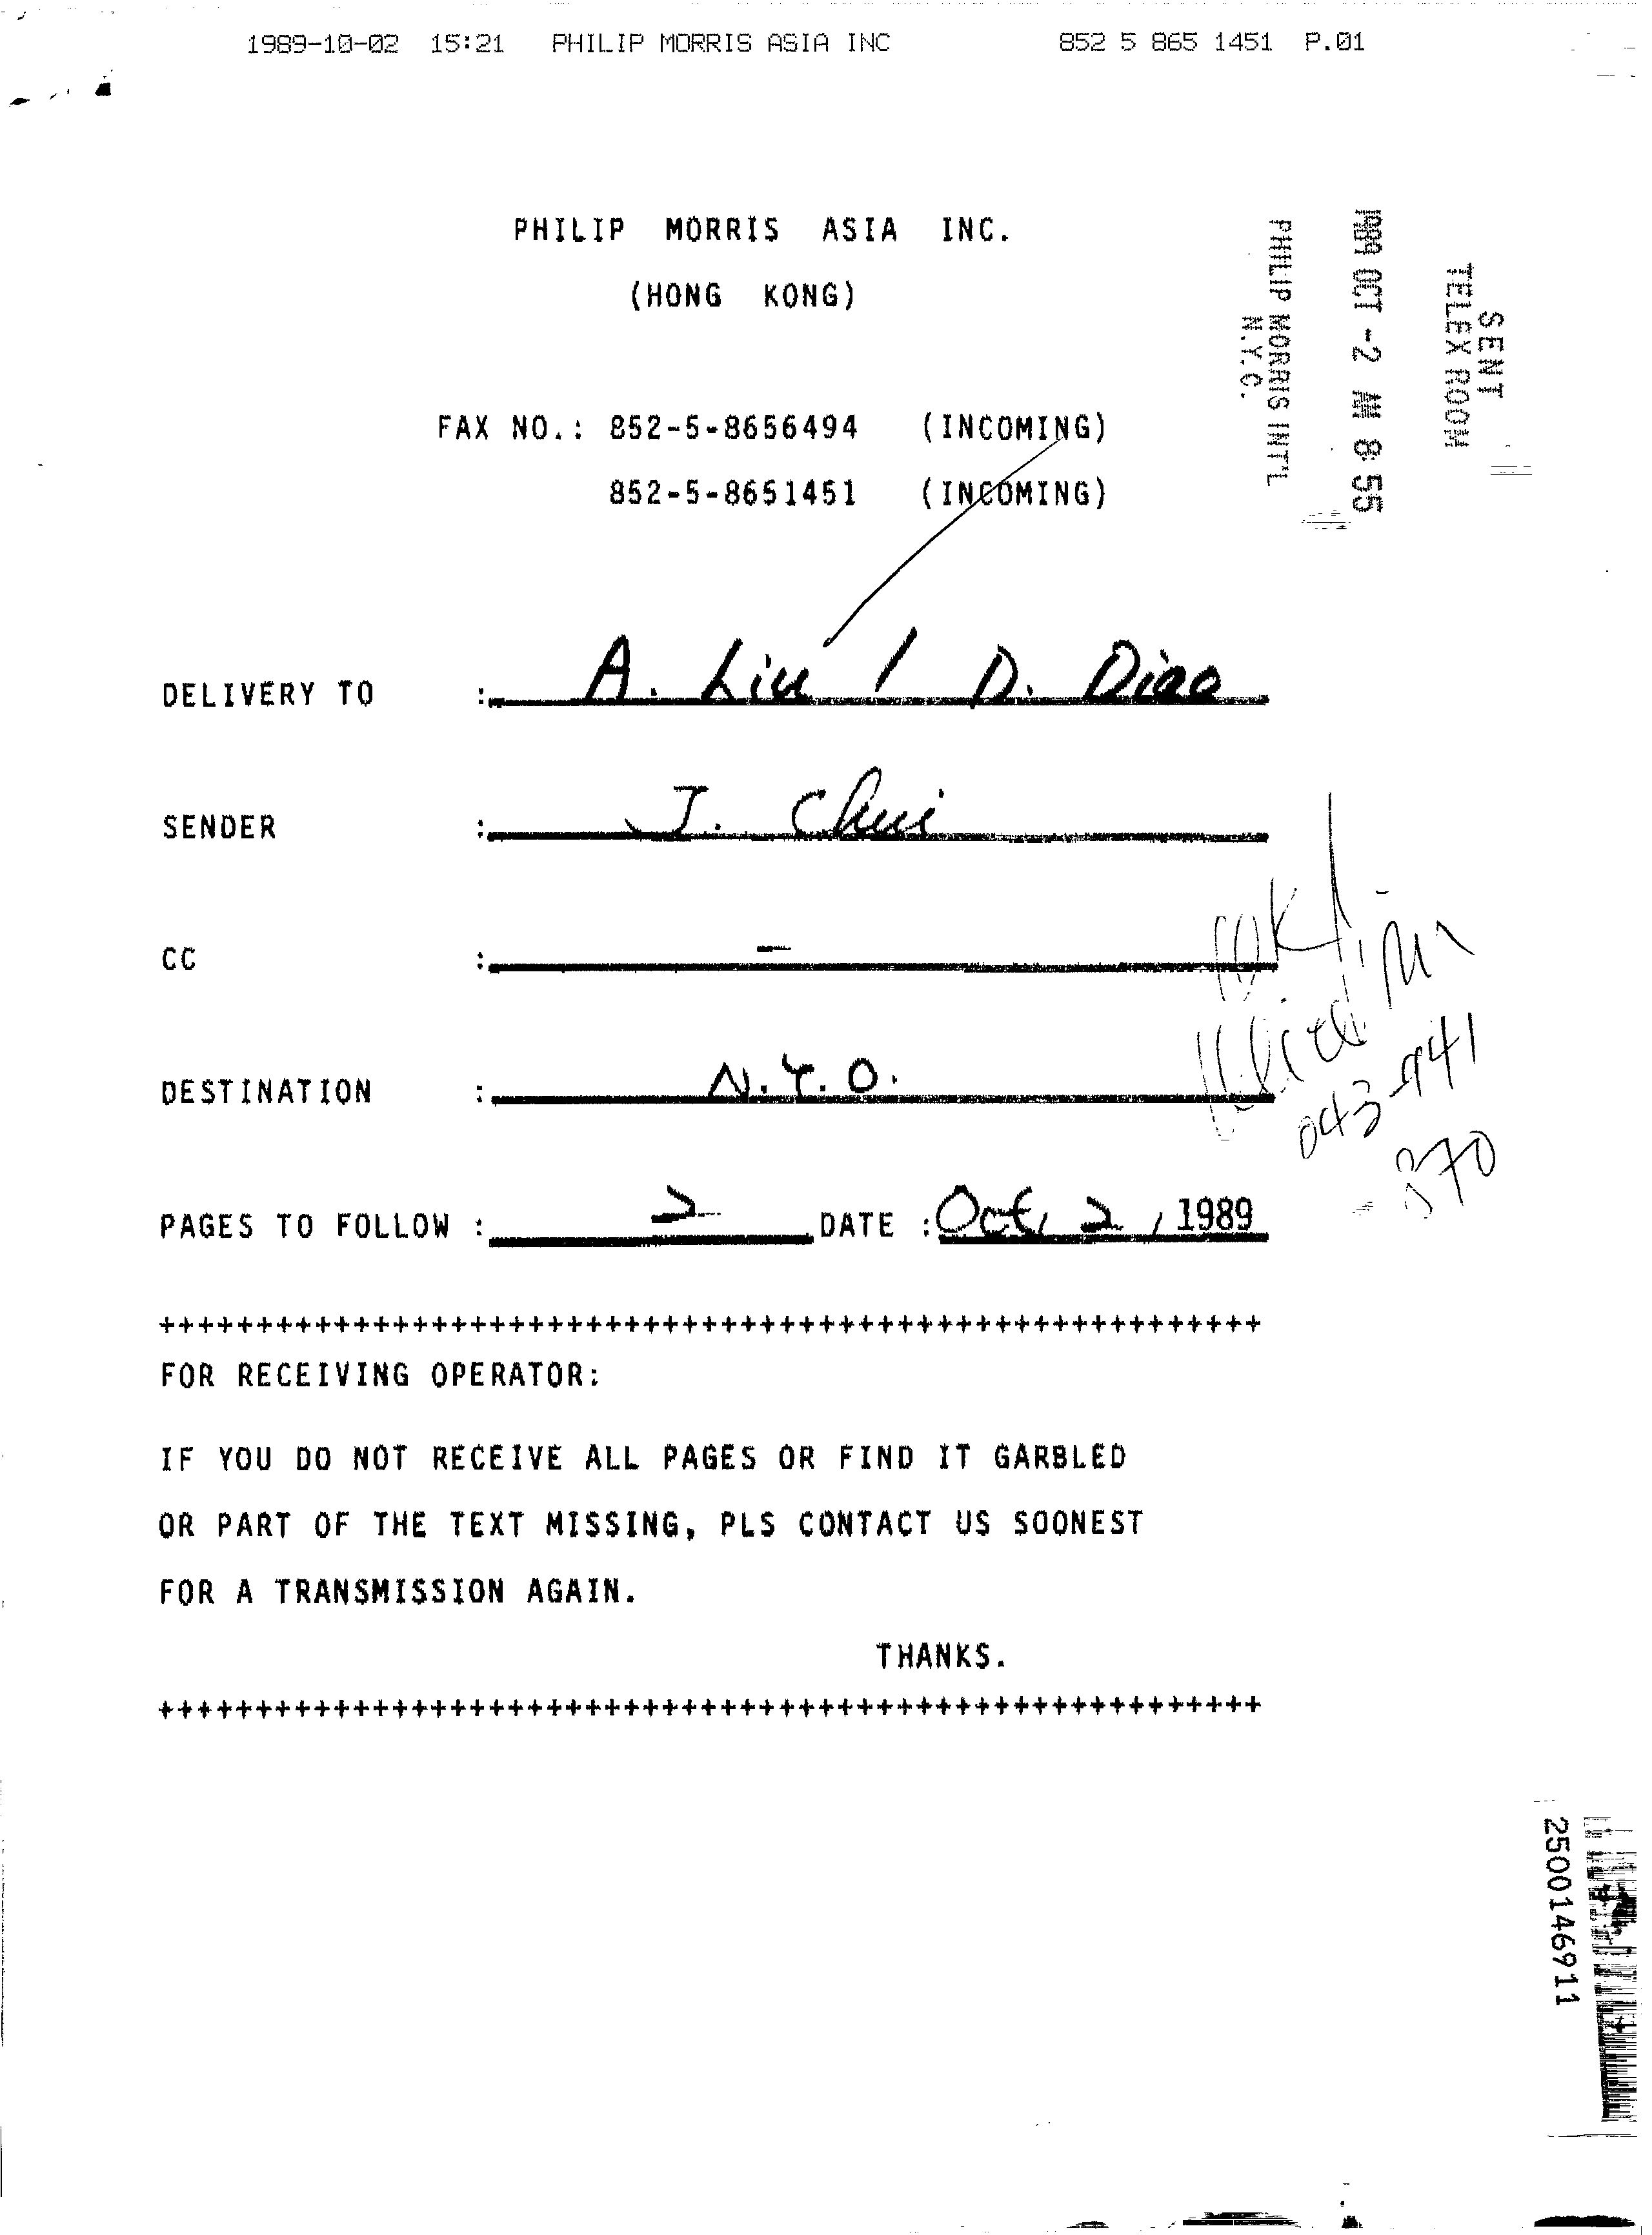 1989-10-02 15:21 PHILIP MORRIS ASIA INC 852 5 865 1451 P.01
PHILIP MORRIS ASIA INC.
(HONG KONG)
SENT
TELEX ROOM
1989 OCT -2 AM 8:55
PHILIP MORRIS INT'L
N.Y.C.
FAX NO.: 852-5-8656494 (INCOMING)
852-5-8651451 (INCOMING)
DELIVERY TO : A. Liu / D. Diao
SENDER : J. Chui
CC : -
DESTINATION : N.Y.O.
043-941
370
PAGES TO FOLLOW : 2 DATE : Oct, 2, 1989
+++++++++++++++++++++++++++++++++++++++++++++++++++++++++
FOR RECEIVING OPERATOR:
IF YOU DO NOT RECEIVE ALL PAGES OR FIND IT GARBLED
OR PART OF THE TEXT MISSING, PLS CONTACT US SOONEST
FOR A TRANSMISSION AGAIN.
THANKS.
+++++++++++++++++++++++++++++++++++++++++++++++++++++++++
2500146911